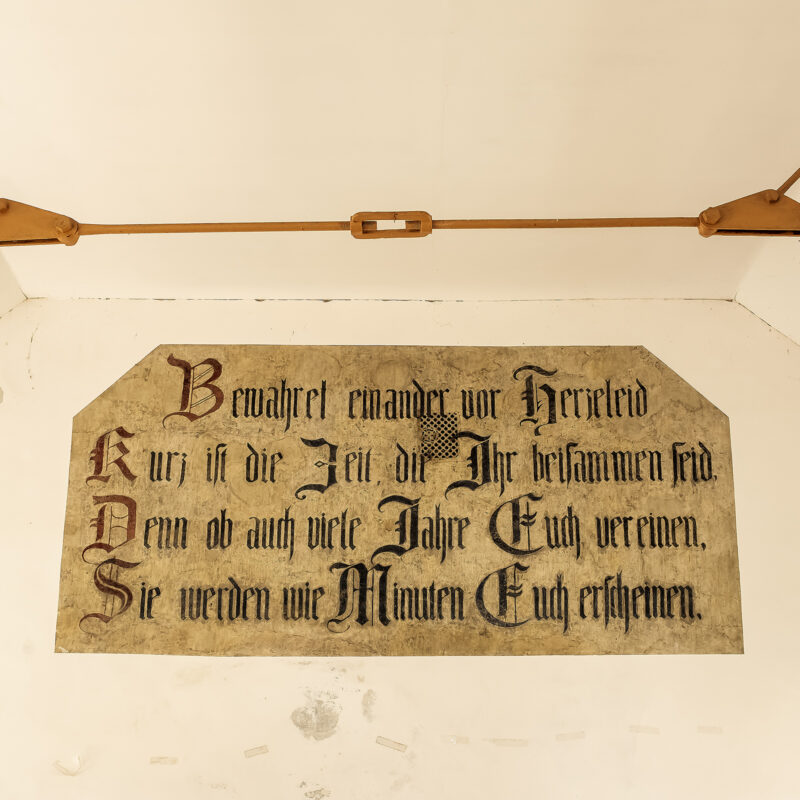 Bewahret einander vor Herzeleid
Kurz ist die Zeit, die Ihr beisammen seid.
Denn ob auch viele Jahre Euch vereinen,
Sie werden wie Minuten Euch erscheinen.